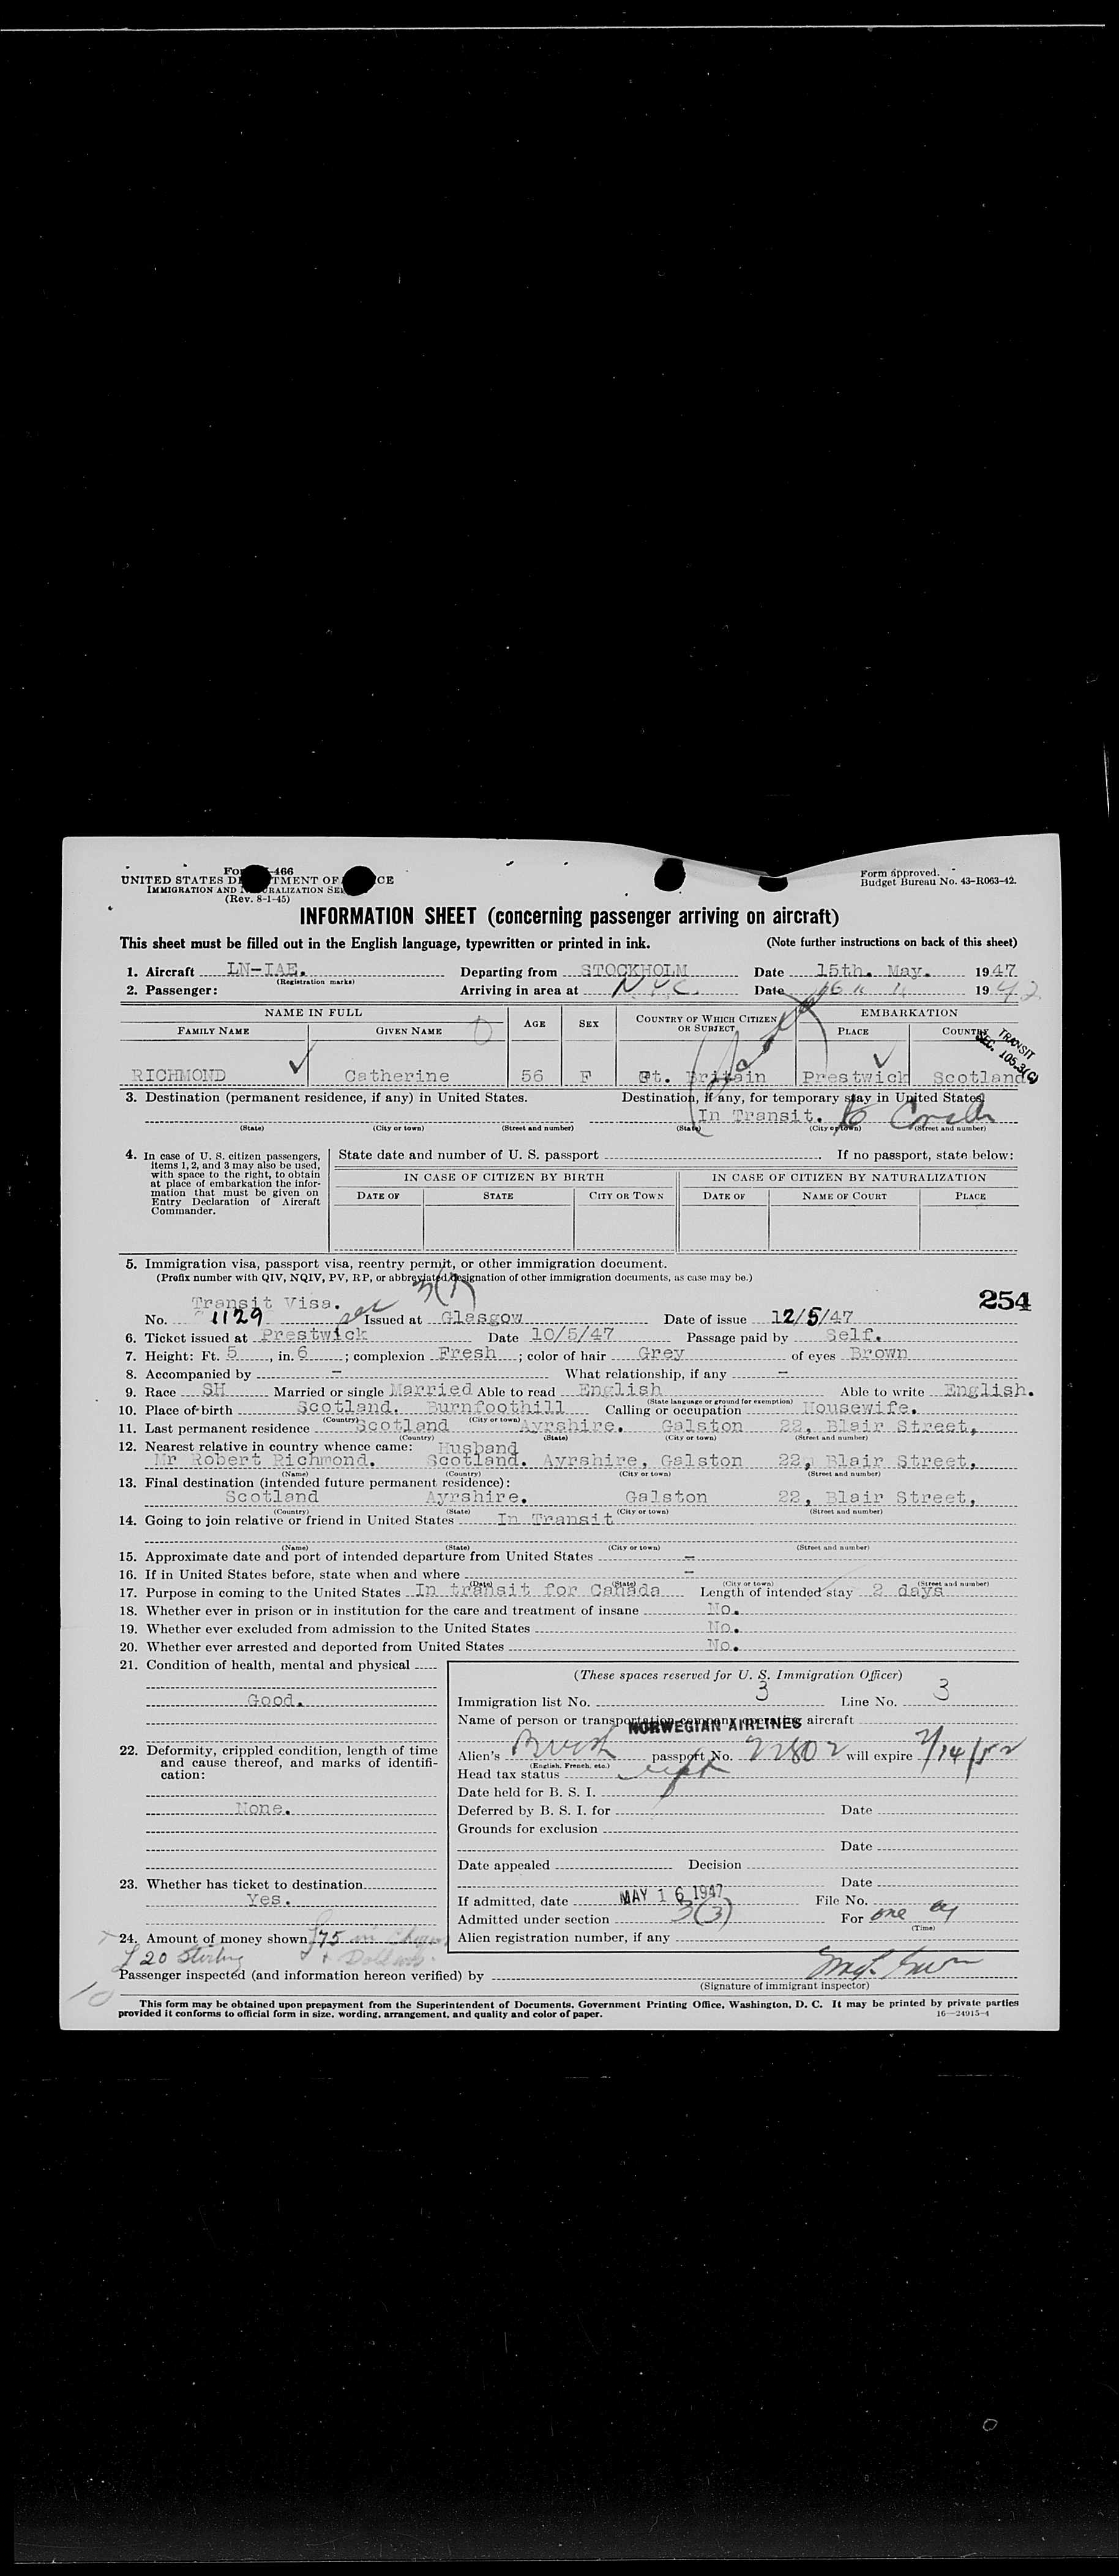 Form 466
UNITED STATES DEPARTMENT OF JUSTICE
IMMIGRATION AND NATURALIZATION SERVICE
(Rev. 8-1-45)
Form approved.
Budget Bureau No. 43-R063-42.
INFORMATION SHEET (concerning passenger arriving on aircraft)
This sheet must be filled out in the English language, typewritten or printed in ink. (Note further instructions on back of this sheet)
1. Aircraft LN-IAE. Departing from STOCKHOLM Date 15th. May. 1947
(Registration marks)
2. Passenger: Arriving in area at N.Y.C. Date 16 " " 19
NAME IN FULL AGE SEX COUNTRY OF WHICH CITIZEN OR SUBJECT EMBARKATION
FAMILY NAME GIVEN NAME PLACE COUNTRY
TRANSIT
SEC. 105.3(C)
RICHMOND Catherine 56 F Gt. Britain Prestwick Scotland
3. Destination (permanent residence, if any) in United States. Destination, if any, for temporary stay in United States
In Transit. to
(State) (City or town) (Street and number) (State) (City or town) (Street and number)
4. In case of U. S. citizen passengers, items 1, 2, and 3 may also be used, with space to the right, to obtain at place of embarkation the information that must be given on Entry Declaration of Aircraft Commander.
State date and number of U. S. passport If no passport, state below:
IN CASE OF CITIZEN BY BIRTH IN CASE OF CITIZEN BY NATURALIZATION
DATE OF STATE CITY OR TOWN DATE OF NAME OF COURT PLACE
5. Immigration visa, passport visa, reentry permit, or other immigration document.
(Prefix number with QIV, NQIV, PV, RP, or abbreviated designation of other immigration documents, as case may be.)
Transit Visa. 254
No. 1129 Issued at Glasgow Date of issue 12/5/47
6. Ticket issued at Prestwick Date 10/5/47 Passage paid by Self.
7. Height: Ft. 5, in. 6; complexion Fresh; color of hair Grey of eyes Brown
8. Accompanied by - What relationship, if any -
9. Race SH Married or single Married Able to read English Able to write English.
(State language or ground for exemption)
10. Place of birth Scotland. Burnfoothill Calling or occupation Housewife.
(Country) (City or town)
11. Last permanent residence Scotland Ayrshire. Galston 22, Blair Street,
(Country) (State) (City or town) (Street and number)
12. Nearest relative in country whence came: Husband
Mr Robert Richmond. Scotland. Ayrshire, Galston 22, Blair Street,
(Name) (Country) (City or town) (Street and number)
13. Final destination (intended future permanent residence):
Scotland Ayrshire. Galston 22, Blair Street,
(Country) (State) (City or town) (Street and number)
14. Going to join relative or friend in United States In Transit
(Name) (State) (City or town) (Street and number)
15. Approximate date and port of intended departure from United States -
16. If in United States before, state when and where -
(Date) (State) (City or town) (Street and number)
17. Purpose in coming to the United States In transit for Canada Length of intended stay 2 days
18. Whether ever in prison or in institution for the care and treatment of insane No.
19. Whether ever excluded from admission to the United States No.
20. Whether ever arrested and deported from United States No.
21. Condition of health, mental and physical
Good.
22. Deformity, crippled condition, length of time and cause thereof, and marks of identification:
None.
23. Whether has ticket to destination
Yes.
24. Amount of money shown $75 in
£20 Sterling + Dollars
(These spaces reserved for U. S. Immigration Officer)
Immigration list No. 3 Line No. 3
Name of person or transportation company operating aircraft
NORWEGIAN AIRLINES
Alien's British passport No. 22802 will expire 2/14/52
(English, French, etc.)
Head tax status
Date held for B. S. I.
Deferred by B. S. I. for Date
Grounds for exclusion
Date
Date appealed Decision
Date
If admitted, date MAY 16 1947 File No.
Admitted under section 3(3) For one
(Time)
Alien registration number, if any
Passenger inspected (and information hereon verified) by
(Signature of immigrant inspector)
10
This form may be obtained upon prepayment from the Superintendent of Documents, Government Printing Office, Washington, D. C. It may be printed by private parties
provided it conforms to official form in size, wording, arrangement, and quality and color of paper. 16-24915-4